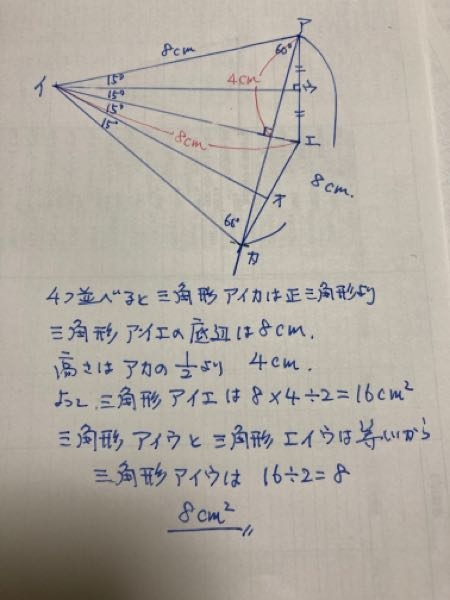 ア
8cm
60°
イ
15°
15°
15°
15°
4cm
ウ
8cm
エ
8cm.
オ
60°
カ
4つ並べると三角形アイカは正三角形より
三角形アイエの底辺は8cm.
高さはアカの1/2より 4cm.
よって、三角形アイエは 8×4÷2=16cm²
三角形アイウと三角形エイウは等しいから
三角形アイウは 16÷2=8
8cm²